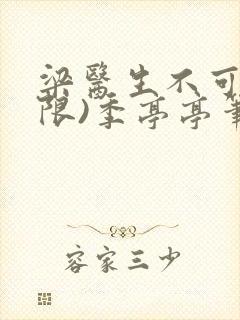 梁醫生不可
限)季亭亭
容家三少